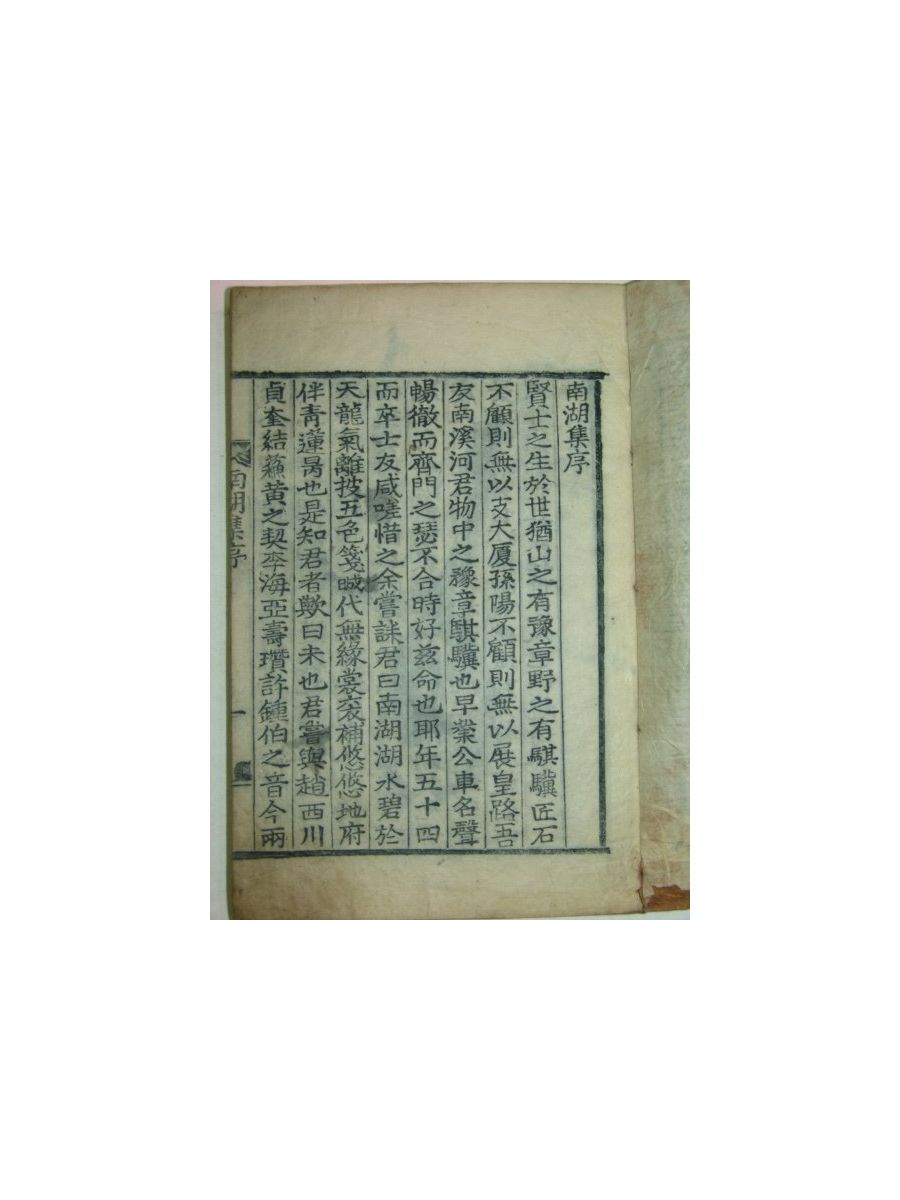 南湖集序
賢士之生於世猶山之有豫章野之有騏驥匠石
不顧則無以支大厦孫陽不顧則無以展皇路吾
友南溪河君物中之豫章騏驥也早業公車名聲
暢徹而齊門之瑟不合時好兹命也耶年五十四
而卒士友咸嗟惜之余嘗誄君曰南湖湖水碧於
天龍氣離披五色箋 代無緣裳衮補悠悠地府
伴青蓮曷也是知君者歟曰未也君嘗與趙西川
貞奎結蘓黄之契李海亞壽瓚許鍾伯之音今兩
南湖集序
一